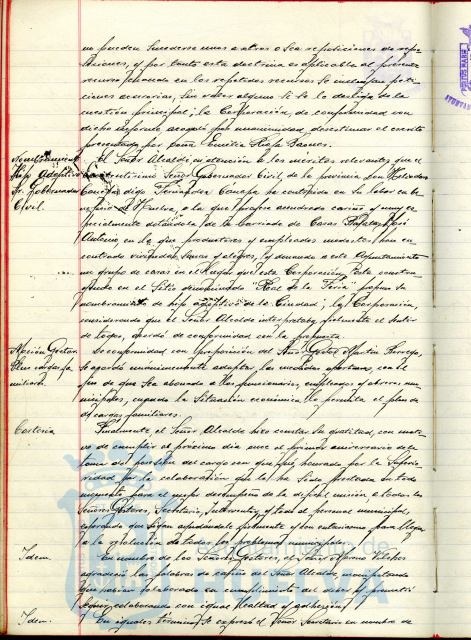 no pueden sucederse unas a otras o sea repeticiones de repe-
ticiones, y por tanto esta doctrina es aplicable al presente
recurso, cuando en los repetidos recursos se incluyan peti-
ciones accesorias, sin valor alguno si se las desliga de la
cuestión principal; la Corporación, de conformidad con
dicho informe, acogió por unanimidad, desestimar el escrito
presentado por Doña Emilia
Nombramiento
Hijo Adoptivo
Sr. Gobernador
Civil.
El Señor Alcalde, en atención a los méritos relevantes que el
Excelentísimo Señor Gobernador Civil de la provincia Don
digo Fernández Canepa ha contraído en su labor en be-
neficio de Huelva, a la que profesa acendrado cariño y muy es-
pecialmente dotándola de la barriada de Casas Baratas José
Antonio, en la que productores y empleados modestos han en-
contrado viviendas sanas y alegres, y donando a este Ayuntamiento
un grupo de casas en el lugar que esta Corporación
en el Sitio denominado "Real de la Feria" propuso su
nombramiento de hijo adoptivo de la Ciudad; la Corporación,
considerando que el Señor Alcalde interpretaba fielmente el sentir
de todos, acordó de conformidad con la propuesta.
Moción Gestor
Plus cargas fa-
miliares.
De conformidad con proposición del Señor Gestor Martín
se acordó unánimemente adoptar las medidas oportunas, con el
fin de que sea abonado a los funcionarios, empleados y obreros mu-
nicipales, cuando la situación económica lo permita el plus de
cargas familiares.
Cortesía
Finalmente el Señor Alcalde hizo constar su gratitud, con moti-
vo de cumplir el próximo día once el primer aniversario de la
toma de posesión del cargo con que fué honrado por la Superio-
ridad por la colaboración que le ha sido prestada en todo
momento para el mejor desempeño de la difícil misión a todos los
Señores Gestores, Secretario, Interventor y todo el personal municipal,
esperando que sigan ayudándole fielmente y con entusiasmo para llegar
a la solución de todos los problemas municipales.
Idem.
En nombre de los Señores Gestores, el Señor Moreno
agradeció las palabras de cariño del Señor Alcalde, manifestando
que habían colaborado en cumplimiento del deber y prometió
seguir colaborando con igual lealtad y adhesión.
Idem.
En iguales términos se expresó el Señor Secretario en nombre de
Ayuntamiento de
HUELVA